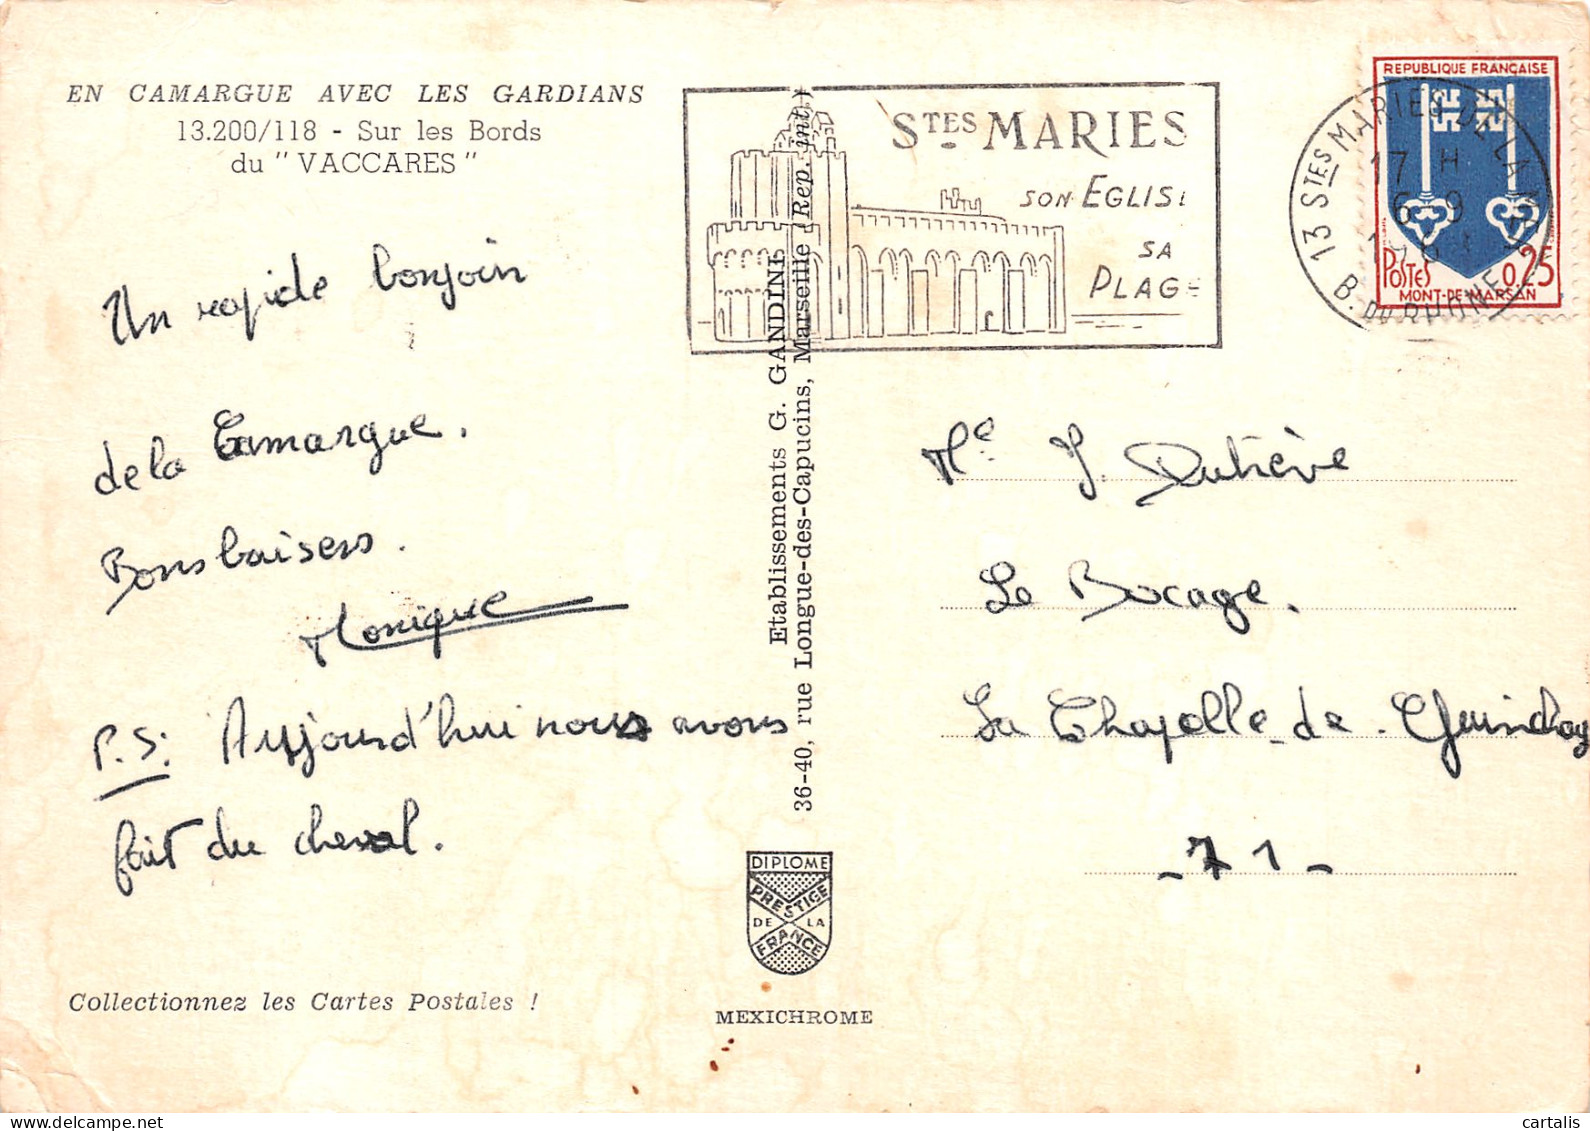 EN CAMARGUE AVEC LES GARDIANS
13.200/118 - Sur les Bords
du "VACCARES"
Un rapide bonjoir
de la Camargue.
Bons baisers.
Monique
P.S: Aujourd'hui nous avons
fait du cheval.
Collectionnez les Cartes Postales !
Etablissements G. GANDINI
36-40, rue Longue-des-Capucins, Marseille (Rep. int.)
DIPLOME
PRESTIGE
DE LA
FRANCE
MEXICHROME
STES MARIES
SON EGLISE
SA
PLAGE
13 STES MARIES DE LA MER
17 H
6 9
B. DU RHONE
REPUBLIQUE FRANÇAISE
POSTES 0,25
MONT-DE-MARSAN
Me J. Dutrève
Le Bocage.
La Chapelle de Guinchay
- 71 -
cartalis.com